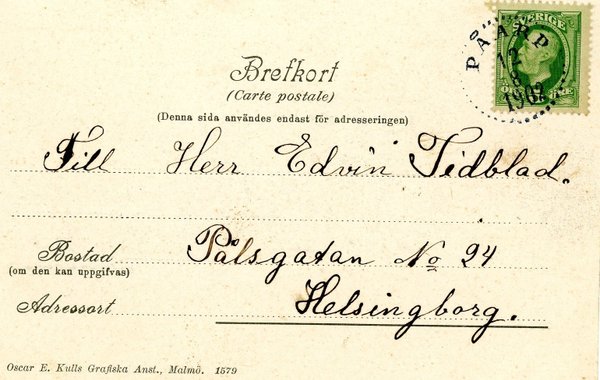 SVERIGE
PÅARP
12
1902
Brefkort
(Carte postale)
(Denna sida användes endast för adresseringen)
Till Herr Edvin Tidblad.
Bostad Pålsgatan No 24
(om den kan uppgifvas)
Adressort Helsingborg.
Oscar E. Kulls Grafiska Anst., Malmö. 1579